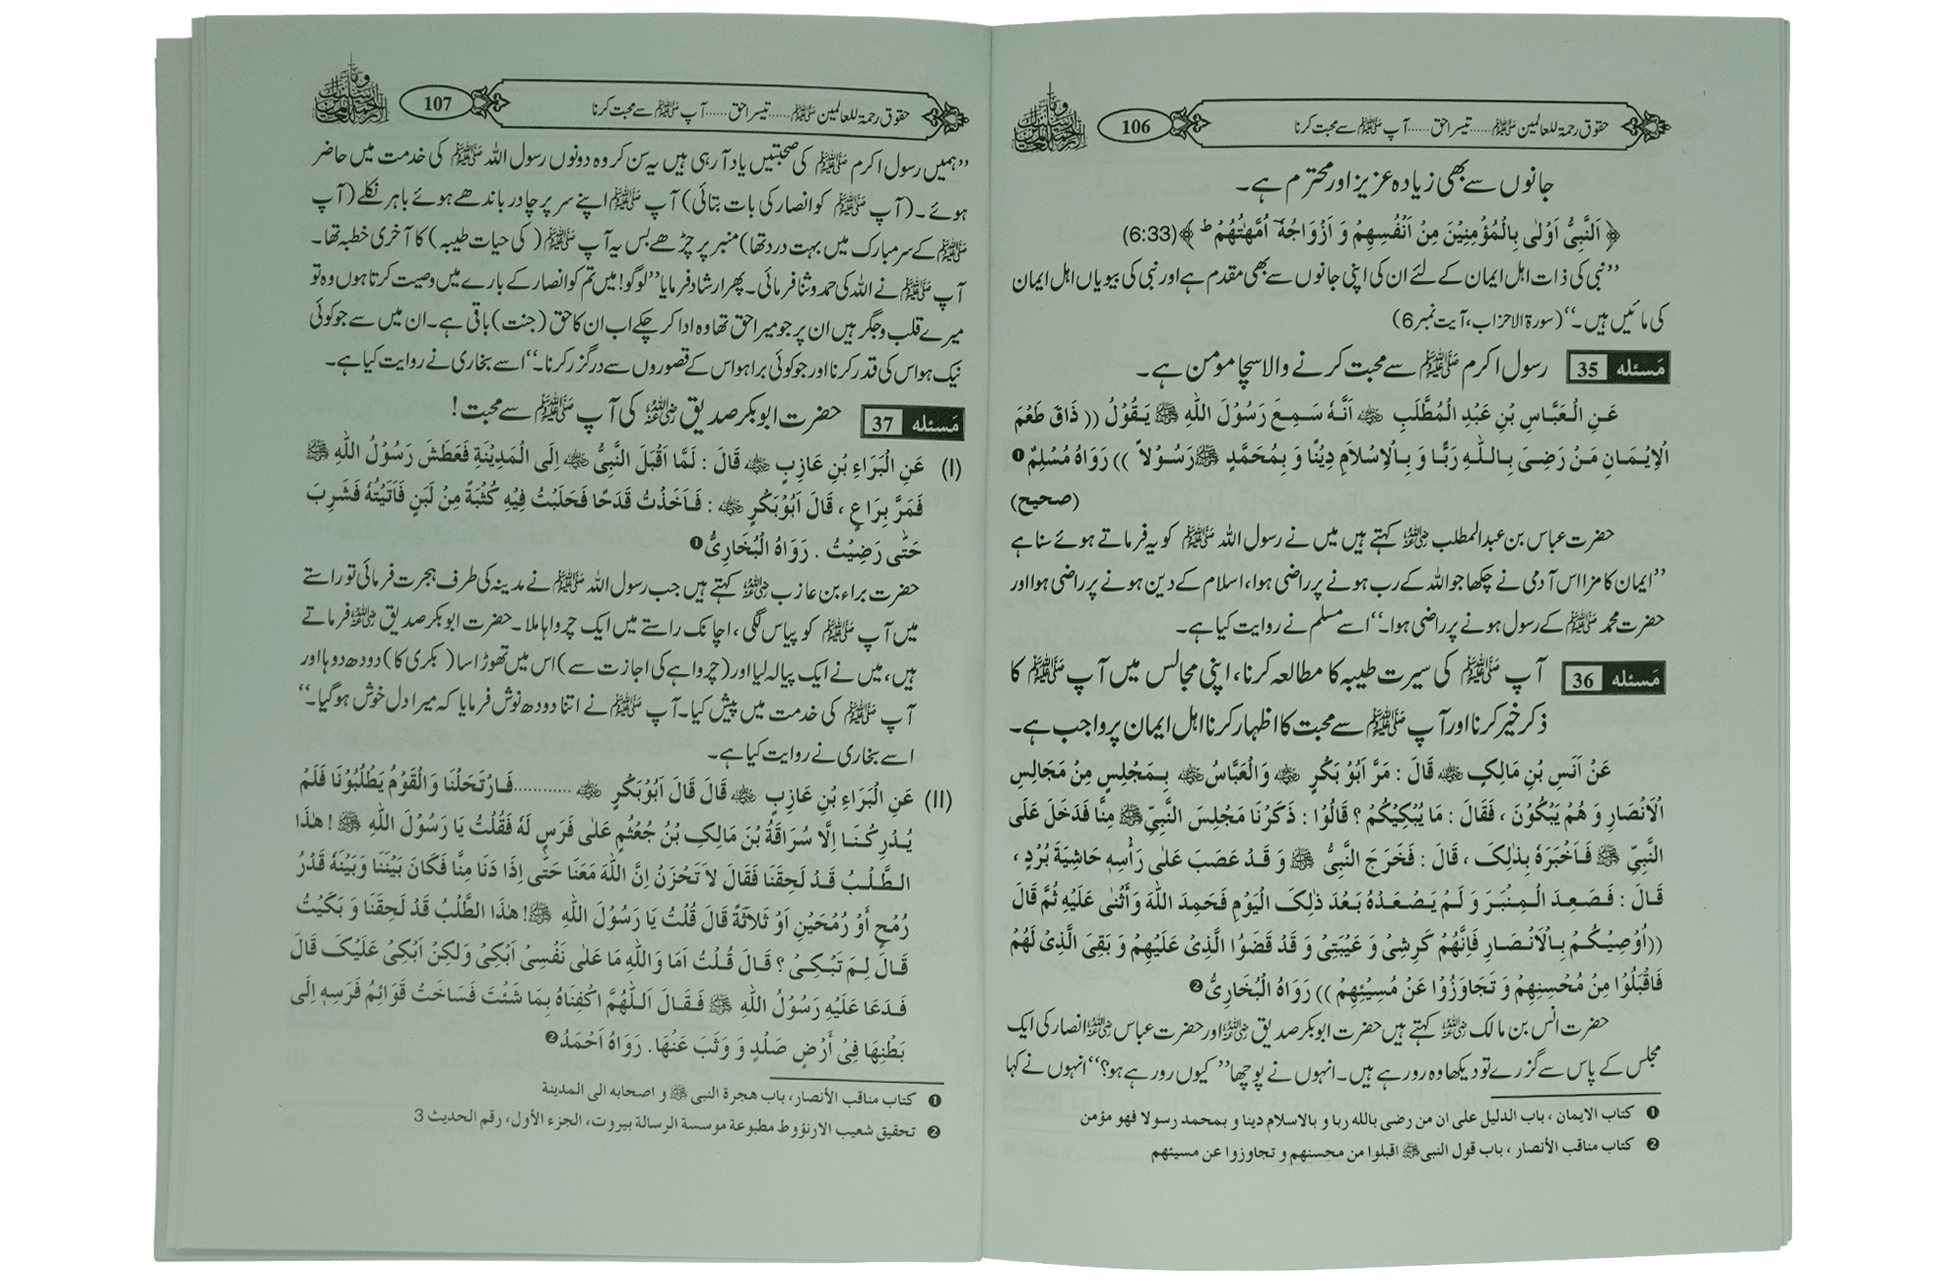 حقوق رحمۃ للعالمین ﷺ......تیسرا حق......آپ ﷺ سے محبت کرنا
106
جانوں سے بھی زیادہ عزیز اور محترم ہے۔
﴿ اَلنَّبِیُّ اَوْلٰی بِالْمُؤْمِنِیْنَ مِنْ اَنْفُسِهِمْ وَ اَزْوَاجُهٗۤ اُمَّهٰتُهُمْ ط ﴾(6:33)
’’نبی کی ذات اہل ایمان کے لئے ان کی اپنی جانوں سے بھی مقدم ہے اور نبی کی بیویاں اہل ایمان
کی مائیں ہیں۔‘‘ (سورۃ الاحزاب، آیت نمبر 6)
مَسئله 35 رسول اکرم ﷺ سے محبت کرنے والا سچا مومن ہے۔
عَنِ الْعَبَّاسِ بْنِ عَبْدِ الْمُطَّلَبِ ؓ اَنَّهٗ سَمِعَ رَسُوْلَ اللّٰهِ ﷺ یَقُوْلُ (( ذَاقَ طَعْمَ
الْاِیْمَانِ مَنْ رَضِیَ بِاللّٰهِ رَبًّا وَ بِالْاِسْلاَمِ دِیْنًا وَ بِمُحَمَّدٍ ﷺ رَسُوْلاً )) رَوَاهُ مُسْلِمٌ ❶
(صحیح)
حضرت عباس بن عبدالمطلب رضی اللہ عنہ کہتے ہیں میں نے رسول اللہ ﷺ کو یہ فرماتے ہوئے سنا ہے
’’ایمان کا مزا اس آدمی نے چکھا جو اللہ کے رب ہونے پر راضی ہوا، اسلام کے دین ہونے پر راضی ہوا اور
حضرت محمد ﷺ کے رسول ہونے پر راضی ہوا۔‘‘ اسے مسلم نے روایت کیا ہے۔
مَسئله 36 آپ ﷺ کی سیرت طیبہ کا مطالعہ کرنا، اپنی مجالس میں آپ ﷺ کا
ذکر خیر کرنا اور آپ ﷺ سے محبت کا اظہار کرنا اہل ایمان پر واجب ہے۔
عَنْ اَنَسِ بْنِ مَالِکٍ ؓ قَالَ : مَرَّ اَبُوْ بَکْرٍ ؓ وَالْعَبَّاسُ ؓ بِمَجْلِسٍ مِنْ مَجَالِسِ
الْاَنْصَارِ وَ هُمْ یَبْکُوْنَ ، فَقَالَ : مَا یُبْکِیْکُمْ ؟ قَالُوْا : ذَکَرْنَا مَجْلِسَ النَّبِیِّ ﷺ مِنَّا فَدَخَلَ عَلَی
النَّبِیِّ ﷺ فَاَخْبَرَهٗ بِذٰلِکَ ، قَالَ : فَخَرَجَ النَّبِیُّ ﷺ وَ قَدْ عَصَبَ عَلٰی رَأْسِهٖ حَاشِیَةَ بُرْدٍ ،
قَالَ : فَصَعِدَ الْمِنْبَرَ وَ لَمْ یَصْعَدْهُ بَعْدَ ذٰلِکَ الْیَوْمِ فَحَمِدَ اللّٰهَ وَ أَثْنٰی عَلَیْهِ ثُمَّ قَالَ
((اُوْصِیْکُمْ بِالْاَنْصَارِ فَاِنَّهُمْ کَرِشِیْ وَ عَیْبَتِیْ وَ قَدْ قَضَوُا الَّذِیْ عَلَیْهِمْ وَ بَقِیَ الَّذِیْ لَهُمْ
فَاقْبَلُوْا مِنْ مُحْسِنِهِمْ وَ تَجَاوَزُوْا عَنْ مُسِیْئِهِمْ )) رَوَاهُ الْبُخَارِیُّ ❷
حضرت انس بن مالک رضی اللہ عنہ کہتے ہیں حضرت ابو بکر صدیق رضی اللہ عنہ اور حضرت عباس رضی اللہ عنہ انصار کی ایک
مجلس کے پاس سے گزرے تو دیکھا وہ رو رہے ہیں۔ انہوں نے پوچھا ’’کیوں رو رہے ہو؟‘‘ انہوں نے کہا
❶ کتاب الایمان ، باب الدلیل علی ان من رضی بالله ربا و بالاسلام دینا و بمحمد رسولا فهو مؤمن
❷ کتاب مناقب الأنصار ، باب قول النبی ﷺ اقبلوا من محسنهم و تجاوزوا عن مسیئهم
حقوق رحمۃ للعالمین ﷺ......تیسرا حق......آپ ﷺ سے محبت کرنا
107
’’ہمیں رسول اکرم ﷺ کی صحبتیں یاد آ رہی ہیں یہ سن کر وہ دونوں رسول اللہ ﷺ کی خدمت میں حاضر
ہوئے۔ (آپ ﷺ کو انصار کی بات بتائی) آپ ﷺ اپنے سر پر چادر باندھے ہوئے باہر نکلے (آپ
ﷺ کے سر مبارک میں بہت درد تھا) منبر پر چڑھے بس یہ آپ ﷺ (کی حیات طیبہ) کا آخری خطبہ تھا۔
آپ ﷺ نے اللہ کی حمد و ثنا فرمائی۔ پھر ارشاد فرمایا ’’لوگو! میں تم کو انصار کے بارے میں وصیت کرتا ہوں وہ تو
میرے قلب و جگر ہیں ان پر جو میرا حق تھا وہ ادا کر چکے اب ان کا حق (جنت) باقی ہے۔ ان میں سے جو کوئی
نیک ہو اس کی قدر کرنا اور جو کوئی برا ہو اس کے قصوروں سے درگزر کرنا۔‘‘ اسے بخاری نے روایت کیا ہے۔
مَسئله 37 حضرت ابوبکر صدیق رضی اللہ عنہ کی آپ ﷺ سے محبت!
(I) عَنِ الْبَرَاءِ بْنِ عَازِبٍ ؓ قَالَ : لَمَّا اَقْبَلَ النَّبِیُّ ﷺ اِلَی الْمَدِیْنَةِ فَعَطَشَ رَسُوْلُ اللّٰهِ ﷺ
فَمَرَّ بِرَاعٍ ، قَالَ اَبُوْبَکْرٍ ؓ : فَاَخَذْتُ قَدَحًا فَحَلَبْتُ فِیْهِ کُثْبَةً مِنْ لَبَنٍ فَاَتَیْتُهٗ فَشَرِبَ
حَتّٰی رَضِیْتُ . رَوَاهُ الْبُخَارِیُّ ❶
حضرت براء بن عازب رضی اللہ عنہ کہتے ہیں جب رسول اللہ ﷺ نے مدینہ کی طرف ہجرت فرمائی تو راستے
میں آپ ﷺ کو پیاس لگی، اچانک راستے میں ایک چرواہا ملا۔ حضرت ابوبکر صدیق رضی اللہ عنہ فرماتے
ہیں، میں نے ایک پیالہ لیا اور (چرواہے کی اجازت سے) اس میں تھوڑا سا (بکری کا) دودھ دوہا اور
آپ ﷺ کی خدمت میں پیش کیا۔ آپ ﷺ نے اتنا دودھ نوش فرمایا کہ میرا دل خوش ہو گیا۔‘‘
اسے بخاری نے روایت کیا ہے۔
(II) عَنِ الْبَرَاءِ بْنِ عَازِبٍ ؓ قَالَ قَالَ اَبُوْبَکْرٍ ؓ ............فَارْتَحَلْنَا وَالْقَوْمُ یَطْلُبُوْنَا فَلَمْ
یُدْرِکْنَا اِلَّا سُرَاقَةُ بْنُ مَالِکِ بْنُ جُعْثُمٍ عَلٰی فَرَسٍ لَهٗ فَقُلْتُ یَا رَسُوْلَ اللّٰهِ ﷺ ! هٰذَا
الطَّلْبُ قَدْ لَحِقَنَا فَقَالَ لاَ تَحْزَنْ اِنَّ اللّٰهَ مَعَنَا حَتّٰی اِذَا دَنَا مِنَّا فَکَانَ بَیْنَنَا وَبَیْنَهٗ قَدْرُ
رُمْحٍ أَوْ رُمْحَیْنِ اَوْ ثَلاَثَةً قَالَ قُلْتُ یَا رَسُوْلَ اللّٰهِ ﷺ! هٰذَا الطَّلْبُ قَدْ لَحِقَنَا وَ بَکَیْتُ
قَالَ لِمَ تَبْکِیْ ؟ قَالَ قُلْتُ اَمَا وَاللّٰهِ مَا عَلٰی نَفْسِیْ اَبْکِیْ وَلٰکِنْ اَبْکِیْ عَلَیْکَ قَالَ
فَدَعَا عَلَیْهِ رَسُوْلُ اللّٰهِ ﷺ فَقَالَ اَللّٰهُمَّ اکْفِنَاهُ بِمَا شَئْتَ فَسَاخَتْ قَوَائِمُ فَرَسِهٖ اِلٰی
بَطْنِهَا فِیْ أَرْضٍ صَلْدٍ وَ وَثَبَ عَنْهَا. رَوَاهُ اَحْمَدُ ❷
❶ کتاب مناقب الأنصار، باب هجرة النبی ﷺ و اصحابه الی المدینة
❷ تحقیق شعیب الارنؤوط مطبوعة موسسة الرسالة بیروت، الجزء الأول، رقم الحدیث 3